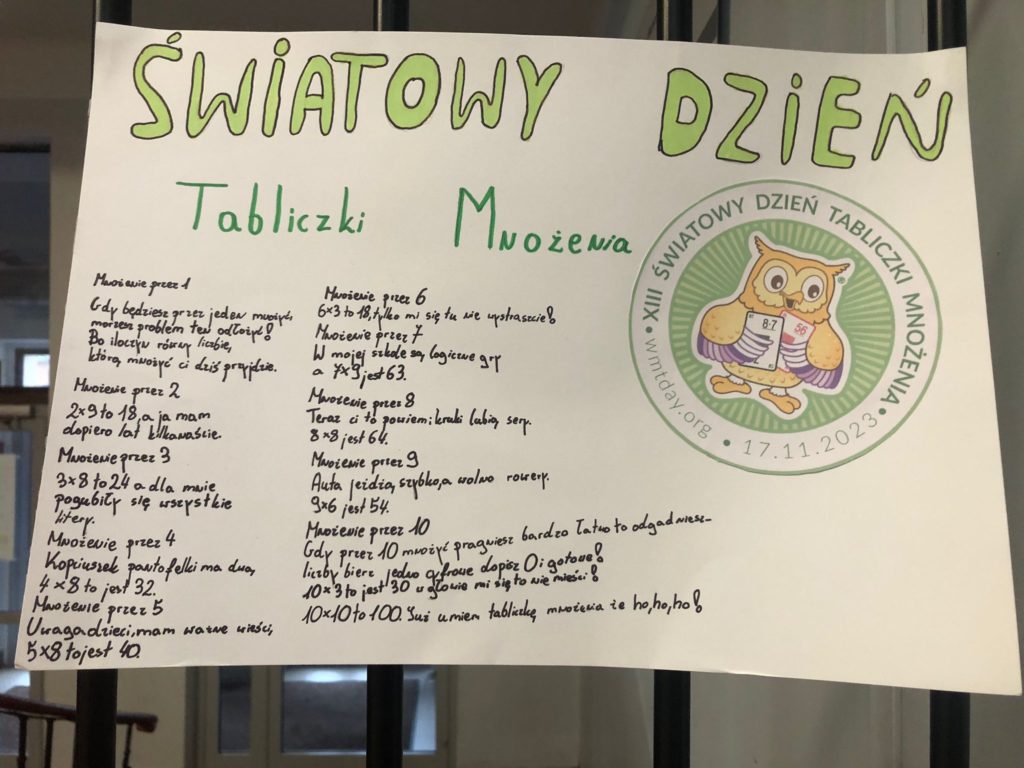 ŚWIATOWY DZIEŃ
Tabliczki Mnożenia
Mnożenie przez 1
Gdy będziesz przez jeden mnożyć,
możesz problem ten odłożyć!
Bo iloczyn równy liczbie,
którą mnożyć ci dziś przyjdzie.
Mnożenie przez 2
2×9 to 18, a ja mam
dopiero lat kilkanaście.
Mnożenie przez 3
3×8 to 24 a dla mnie
pogubiły się wszystkie
litery.
Mnożenie przez 4
Kopciuszek pantofelki ma dwa,
4×8 to jest 32.
Mnożenie przez 5
Uwaga dzieci, mam ważne wieści,
5×8 to jest 40.
Mnożenie przez 6
6×3 to 18, tylko mi się tu nie wystraszcie!
Mnożenie przez 7
W mojej szkole są logiczne gry
a 7×9 jest 63.
Mnożenie przez 8
Teraz ci to powiem: kruki lubią sery.
8×8 jest 64.
Mnożenie przez 9
Auta jeżdżą szybko, a wolno rowery.
9×6 jest 54.
Mnożenie przez 10
Gdy przez 10 mnożyć pragniesz bardzo łatwo to odgadniesz-
liczby bierz jedno cyfrowe dopisz 0 i gotowe!
10×3 to jest 30 w głowie mi się to nie mieści!
10×10 to 100. Już umiem tabliczkę mnożenia że ho, ho, ho!
XIII ŚWIATOWY DZIEŃ TABLICZKI MNOŻENIA
8·7
56
®
wmtday.org • 17.11.2023